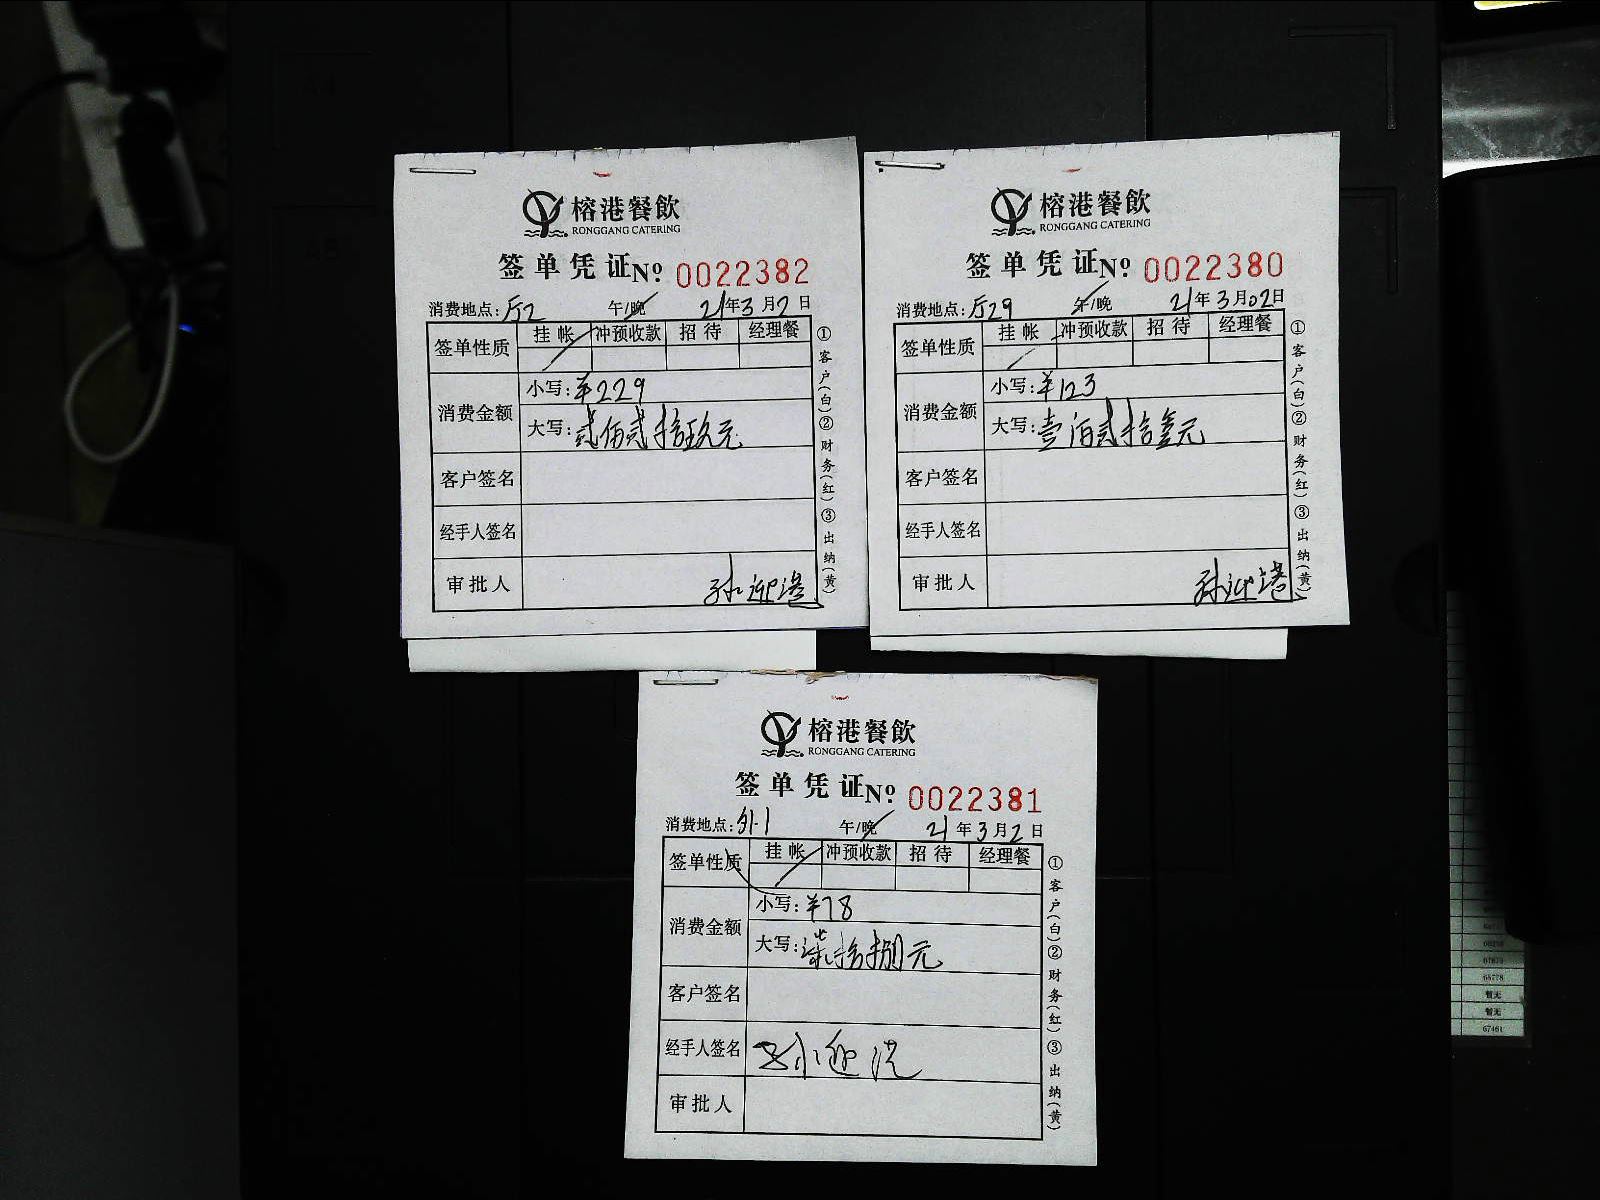 榕港餐飲
RONGGANG CATERING
签单凭证 Nº 0022382
消费地点: 厅2 午/晚 21年3月2日
签单性质 挂帐 冲预收款 招待 经理餐
消费金额 小写: ¥229
大写: 贰佰贰拾玖元
客户签名
经手人签名
审批人 孙迎港
①客户(白)②财务(红)③出纳(黄)
榕港餐飲
RONGGANG CATERING
签单凭证 Nº 0022380
消费地点: 厅29 午/晚 21年3月02日
签单性质 挂帐 冲预收款 招待 经理餐
消费金额 小写: ¥123
大写: 壹佰贰拾叁元
客户签名
经手人签名
审批人 孙迎港
①客户(白)②财务(红)③出纳(黄)
榕港餐飲
RONGGANG CATERING
签单凭证 Nº 0022381
消费地点: 外1 午/晚 21年3月2日
签单性质 挂帐 冲预收款 招待 经理餐
消费金额 小写: ¥78
大写: 柒拾捌元
客户签名
经手人签名 孙迎港
审批人
①客户(白)②财务(红)③出纳(黄)
65778
暂无
暂无
67461